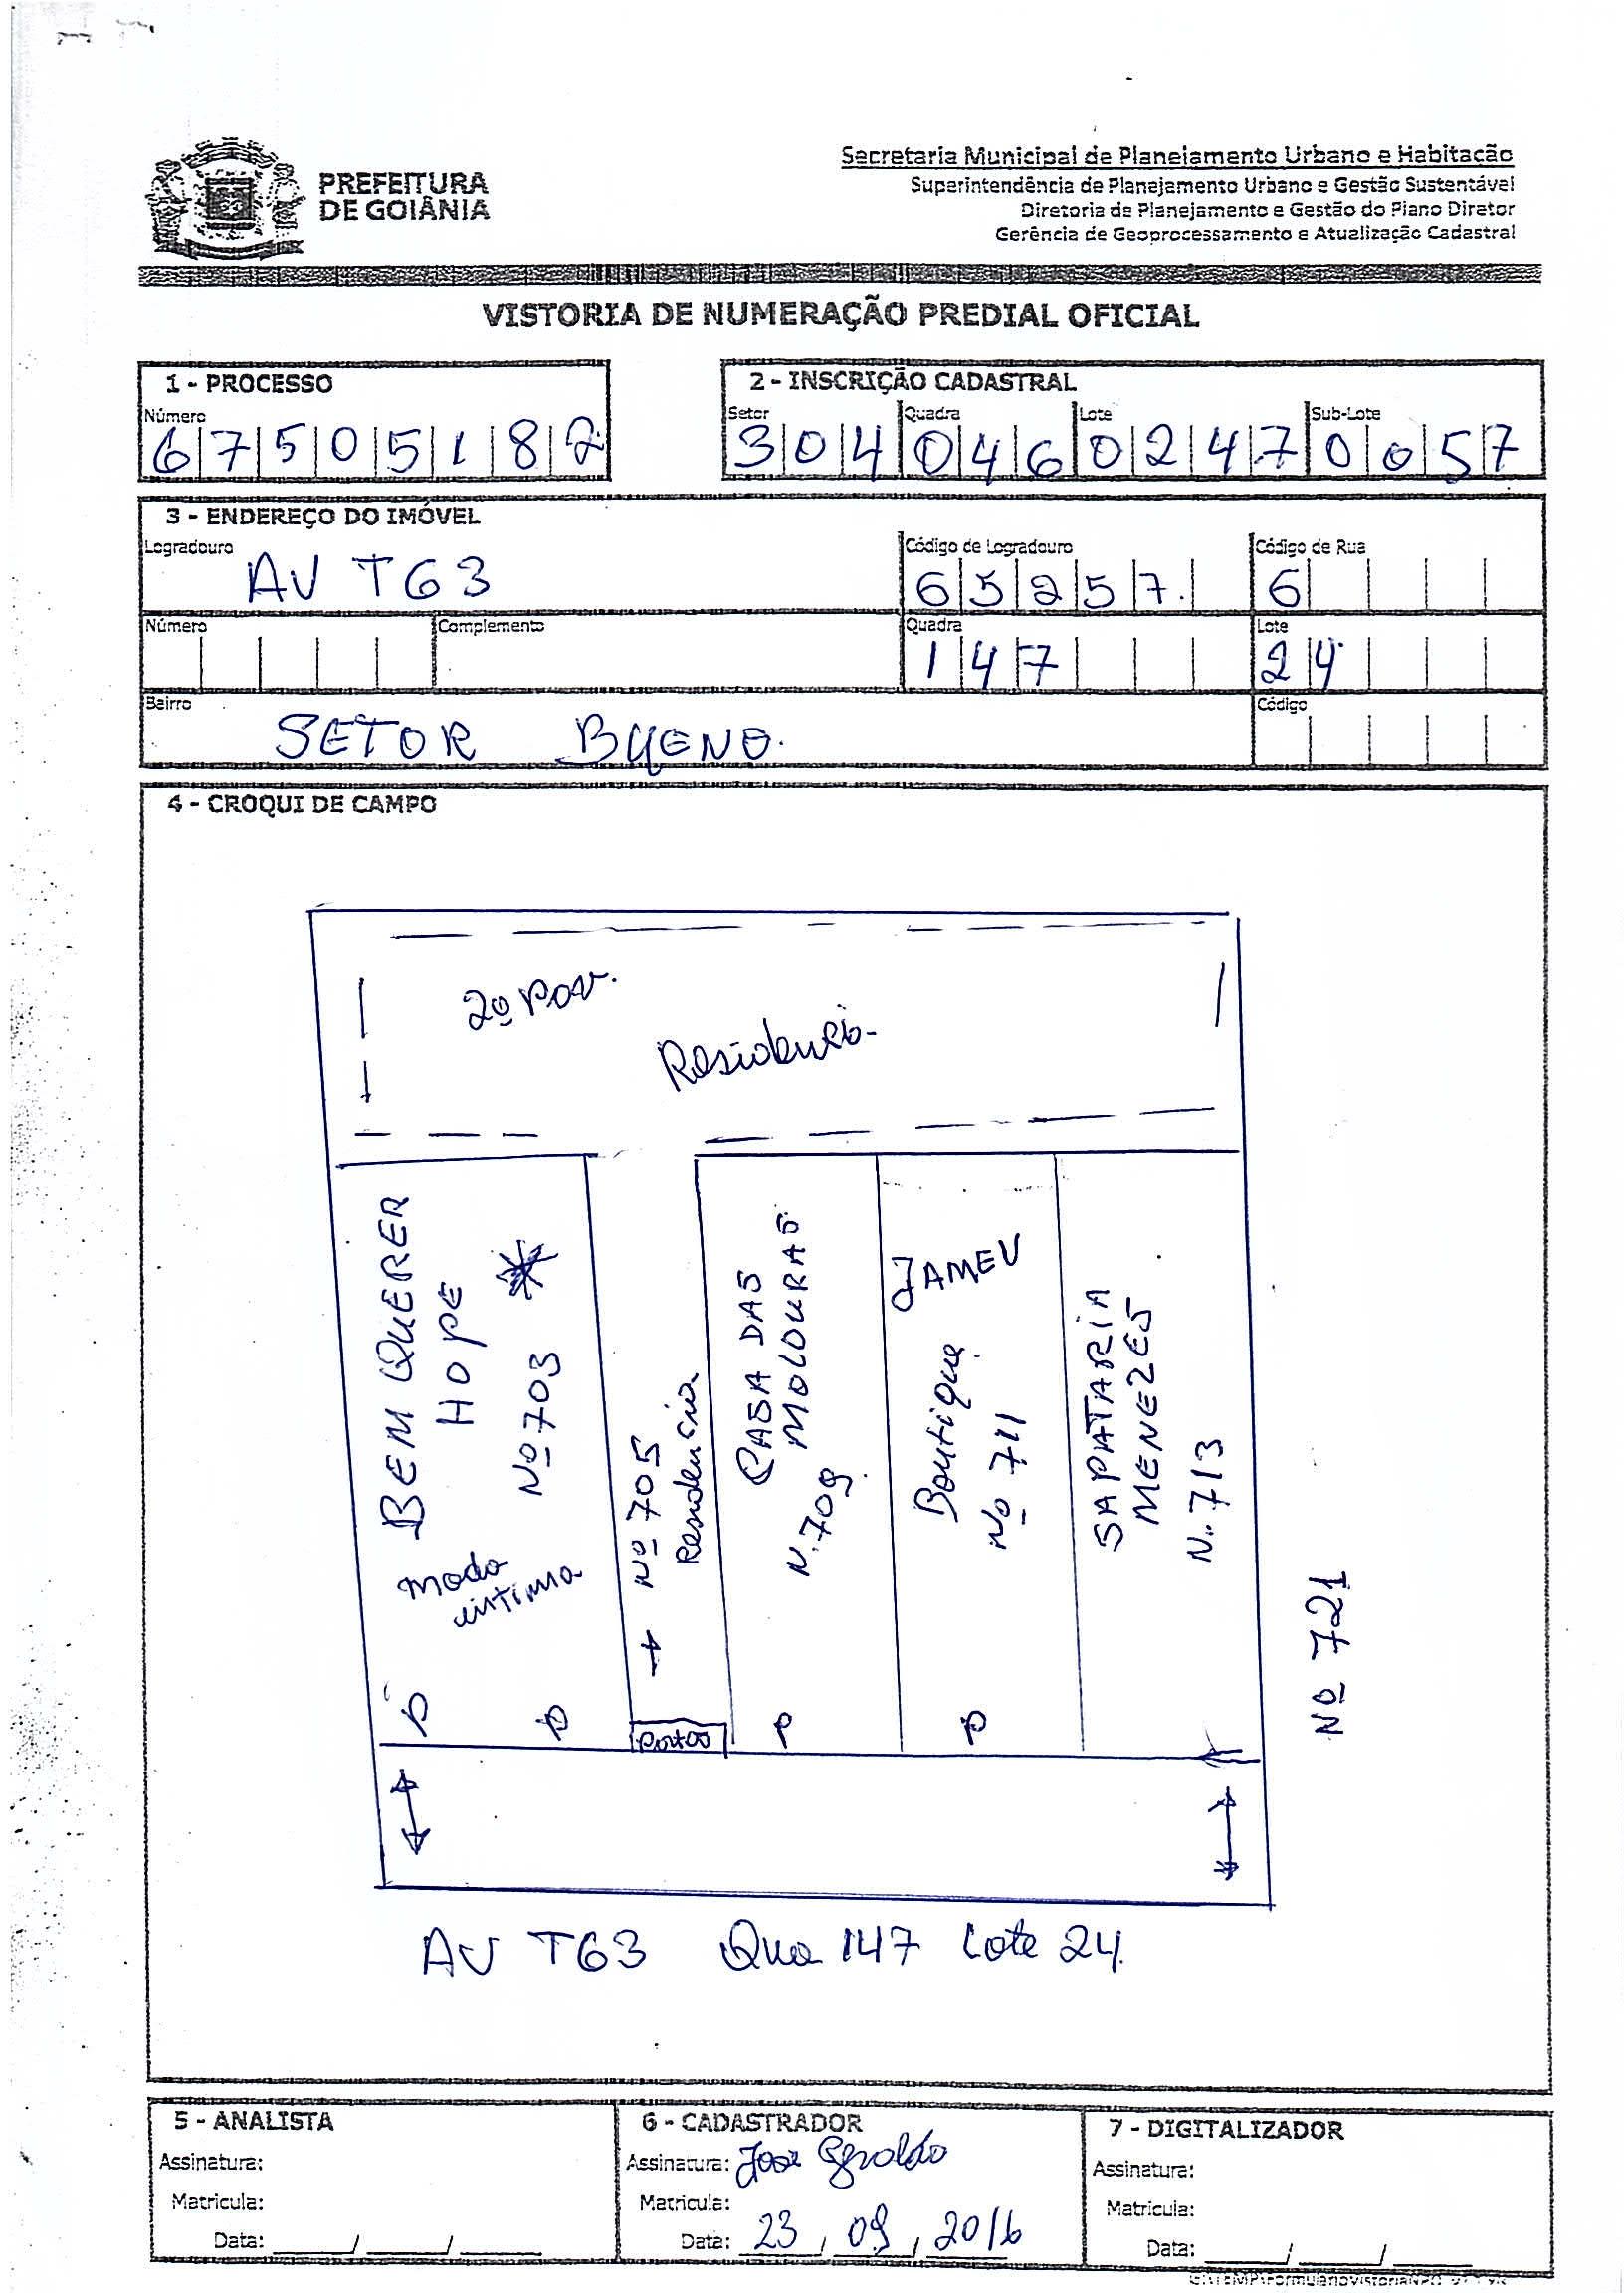 PREFEITURA
DE GOIÂNIA
Secretaria Municipal de Planejamento Urbano e Habitação
Superintendência de Planejamento Urbano e Gestão Sustentável
Diretoria de Planejamento e Gestão do Plano Diretor
Gerência de Geoprocessamento e Atualização Cadastral
VISTORIA DE NUMERAÇÃO PREDIAL OFICIAL
1 - PROCESSO
Número
67505182
2 - INSCRIÇÃO CADASTRAL
Setor Quadra Lote Sub-Lote
304 046 0247 0057
3 - ENDEREÇO DO IMÓVEL
Logradouro Código de Logradouro Código de Rua
AV T63 65257. 6
Número Complemento Quadra Lote
147 24
Bairro Código
SETOR BUENO.
4 - CROQUI DE CAMPO
2º Pav.
Residencia
BEM QUERER
HOPE
Nº 703
Moda
intima
P
P
Nº 705
Residencia
Portão
CASA DAS
MOLDURAS
N. 709
P
JAMEV
Boutique
Nº 711
P
SAPATARIA
MENEZES
N. 713
Nº 721
AV T63 Qua 147 Lote 24.
5 - ANALISTA
Assinatura:
Matricula:
Data: / /
6 - CADASTRADOR
Assinatura: José Geraldo
Matricula:
Data: 23 / 09 / 2016
7 - DIGITALIZADOR
Assinatura:
Matricula:
Data: / /